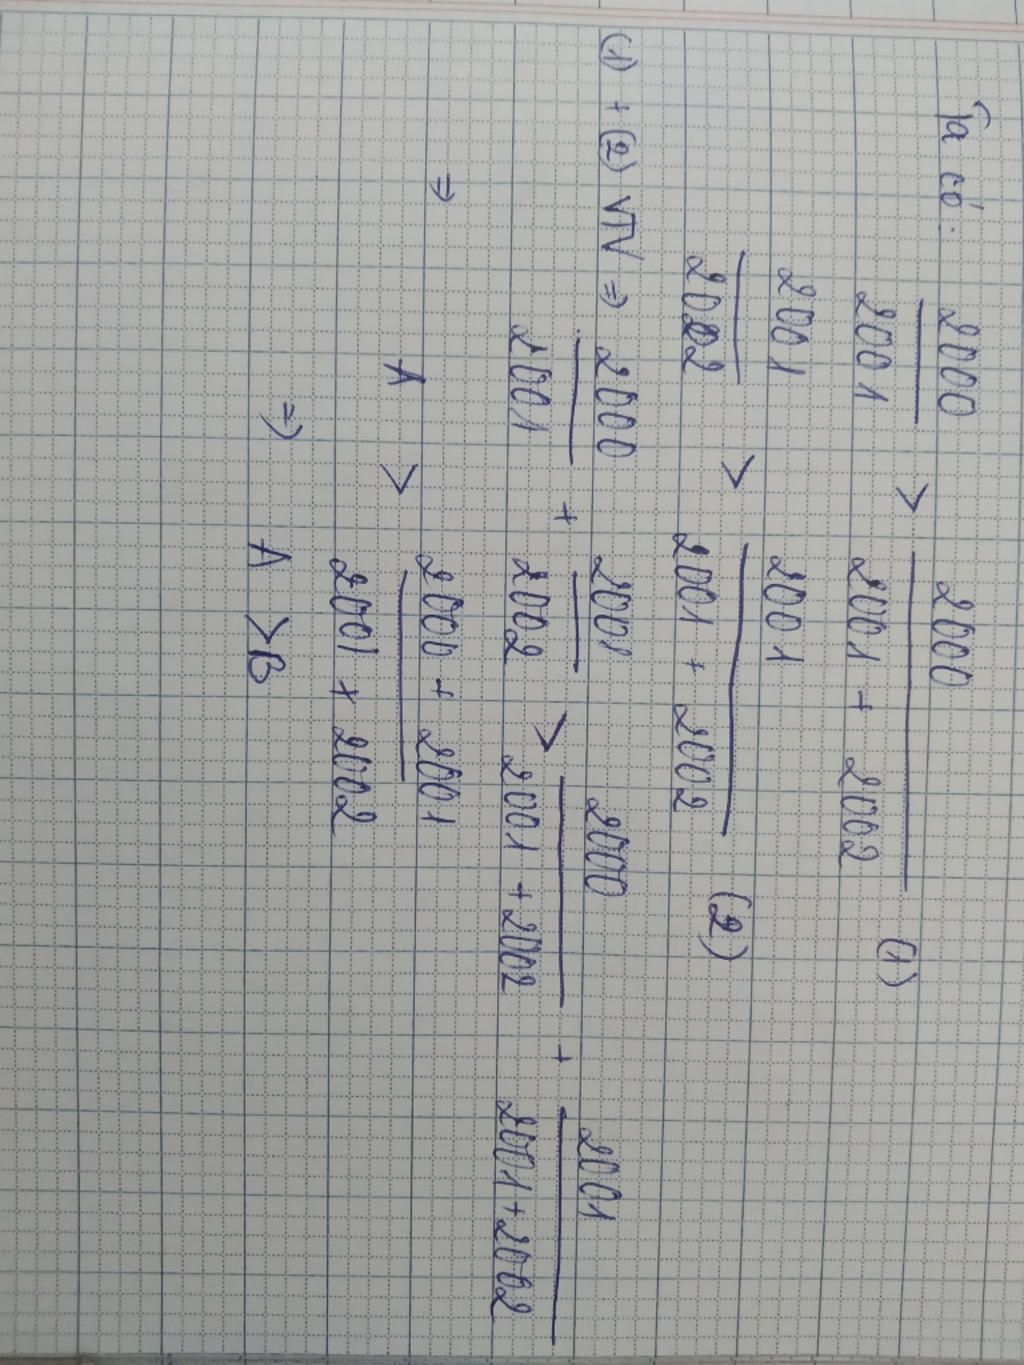 Ta có: 2000/2001 > 2000/(2001 + 2002) (1)
2001/2002 > 2001/(2001 + 2002) (2)
(1) + (2) VTV => 2000/2001 + 2001/2002 > 2000/(2001 + 2002) + 2001/(2001 + 2002)
=> A > (2000 + 2001)/(2001 + 2002)
=> A > B